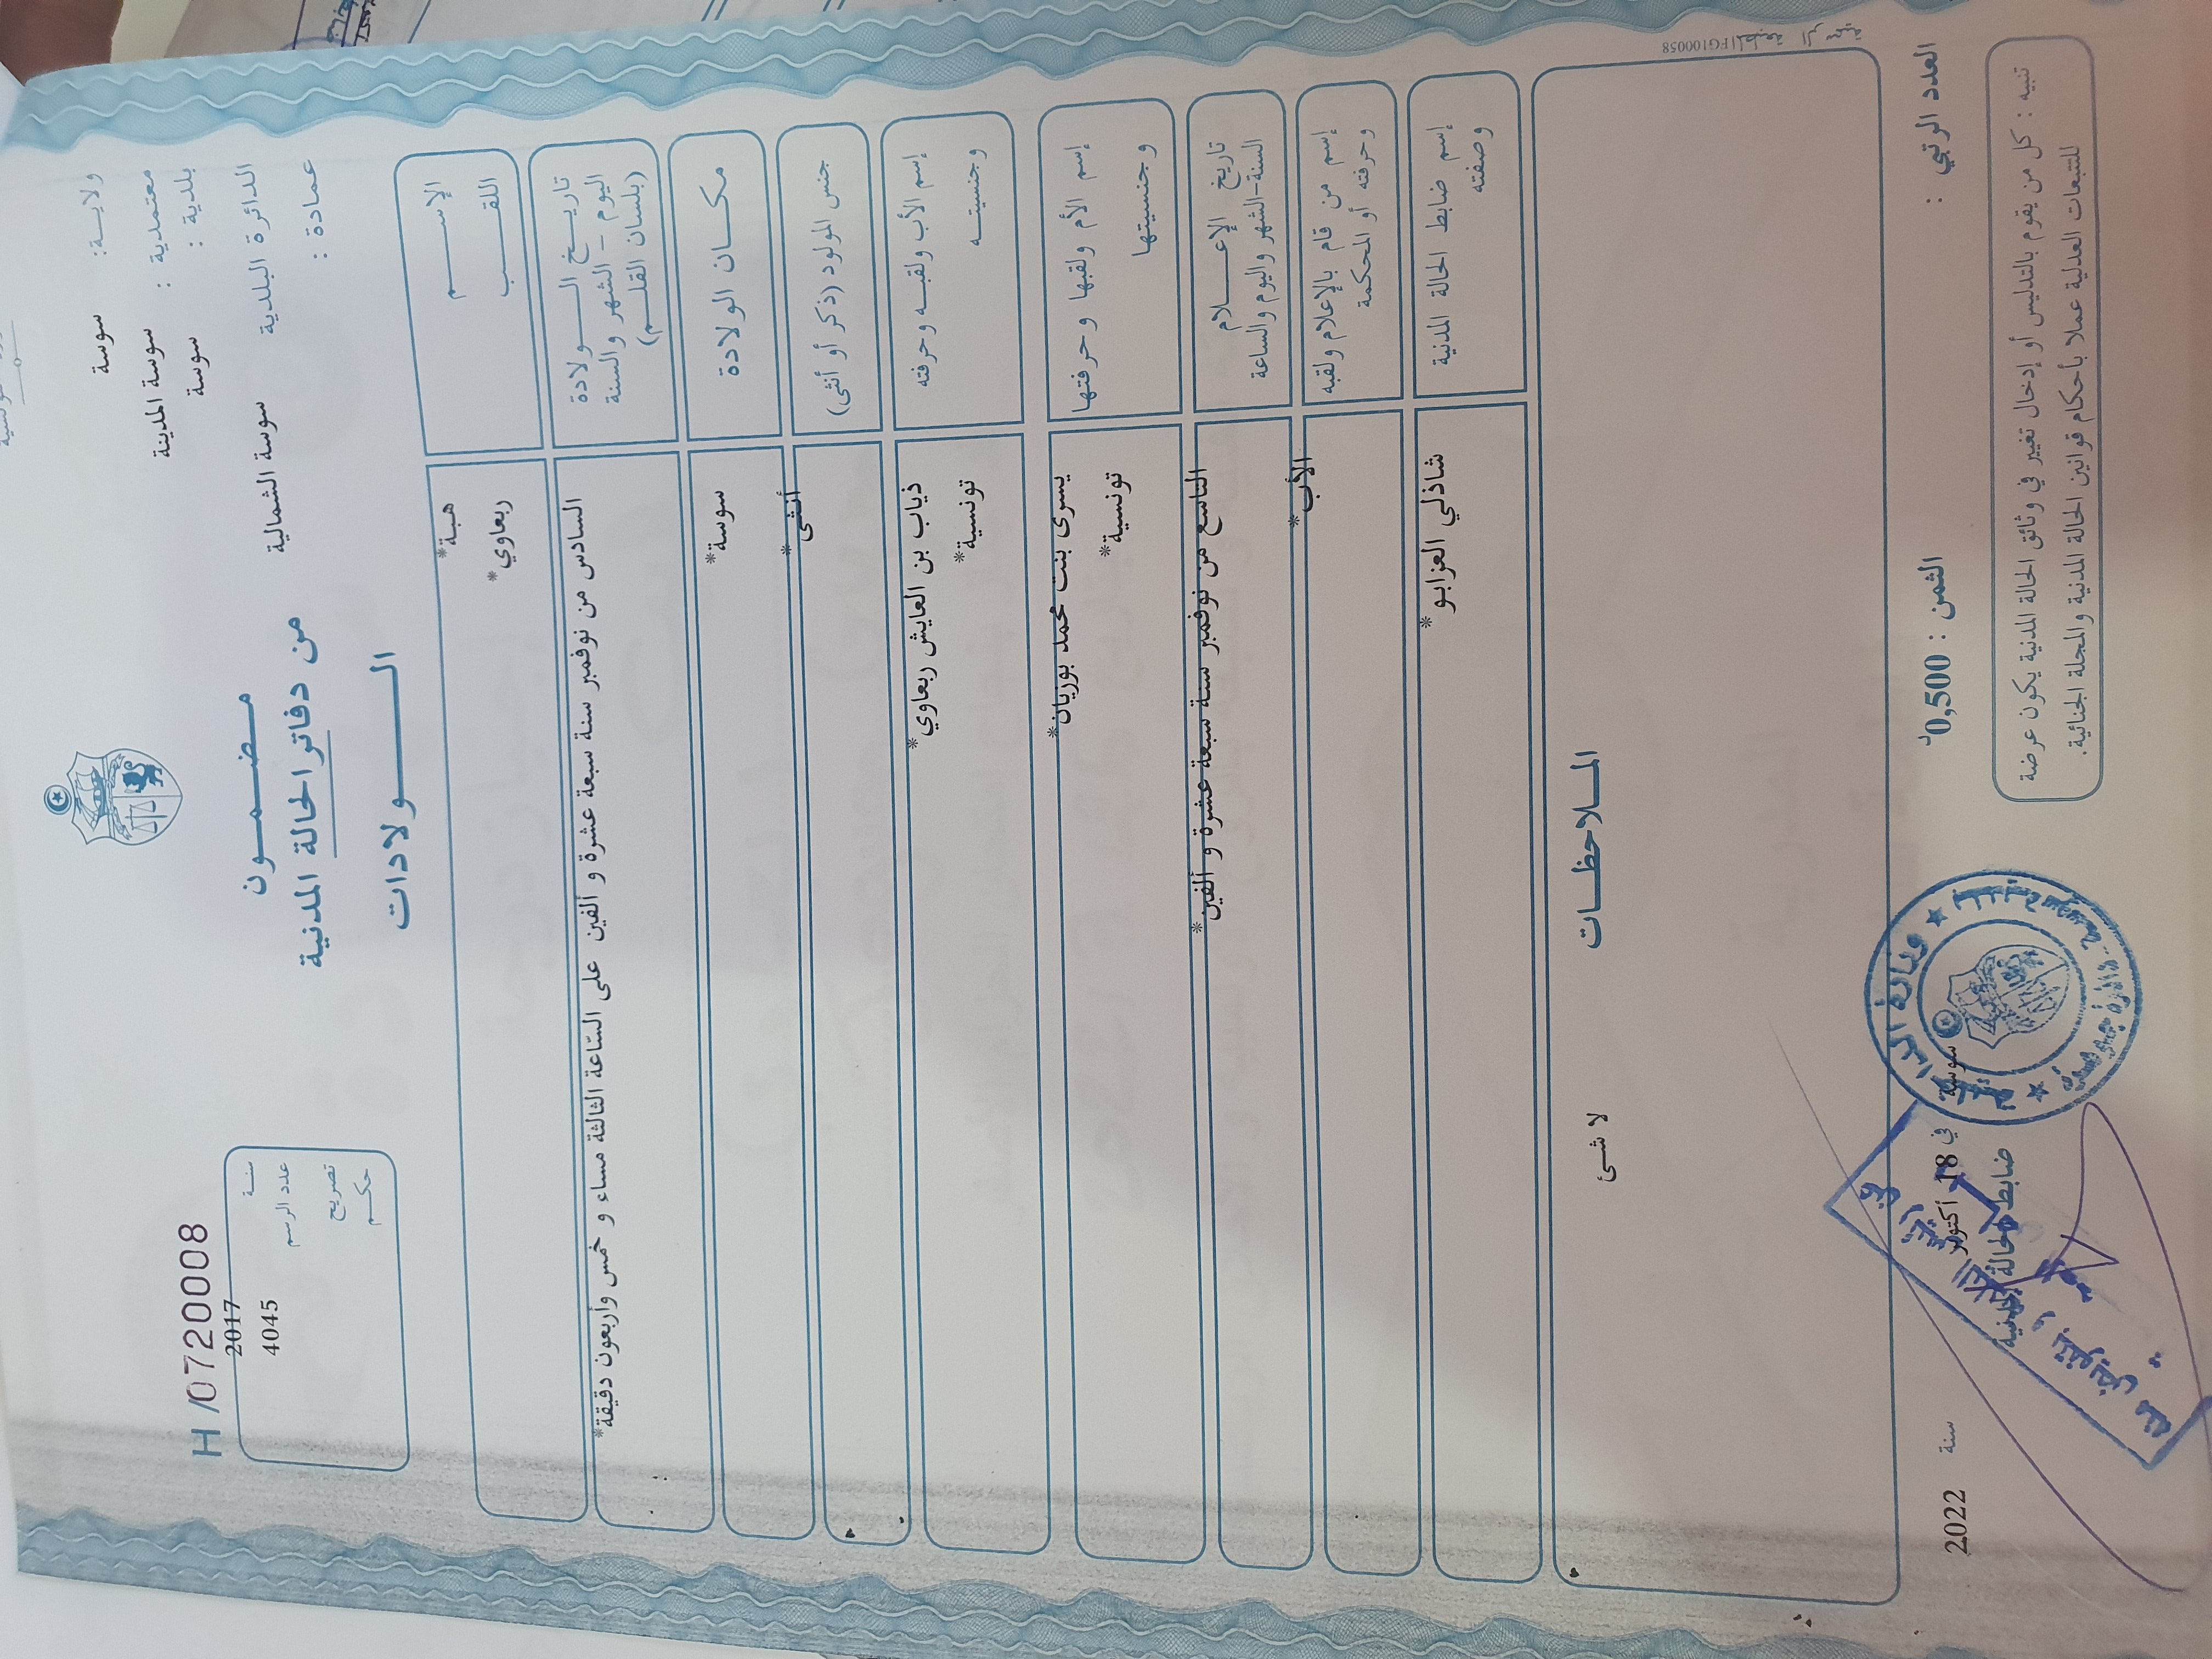 ولاية: سوسة
معتمدية : سوسة المدينة
بلدية : سوسة
الدائرة البلدية سوسة الشمالية
عمادة :
مضمون
من دفاتر الحالة المدنية
الولادات
H /0720008
سنة 2017
عدد الرسم 4045
تصريح
حكم
الإسم *هبة
اللقب *ربعاوي
تاريخ الولادة
اليوم - الشهر والسنة
(بلسان القلم)
السادس من نوفمبر سنة سبعة عشرة و ألفين على الساعة الثالثة مساء و خمس وأربعون دقيقة*
مكان الولادة *سوسة
جنس المولود (ذكر أو أنثى) *أنثى
إسم الأب ولقبه وحرفته ذياب بن العايش ربعاوي*
وجنسيته تونسية*
إسم الأم ولقبها وحرفتها يسرى بنت محمد بوزيان*
وجنسيتها تونسية*
تاريخ الإعلام
السنة-الشهر واليوم والساعة
التاسع من نوفمبر سنة سبعة عشرة و ألفين*
إسم من قام بالإعلام ولقبه
وحرفته أو المحكمة
الأب*
إسم ضابط الحالة المدنية
وصفته
شاذلي العزابو*
الملاحظات
لا شئ
المطبعة الرسمية FG100058
العدد الرتبي :
الثمن : 0,500د
سوسة في 18 أكتوبر سنة 2022
ضابط الحالة المدنية
تنبيه : كل من يقوم بالتدليس أو إدخال تغيير في وثائق الحالة المدنية يكون عرضة
للتتبعات العدلية عملا بأحكام قوانين الحالة المدنية والمجلة الجنائية.